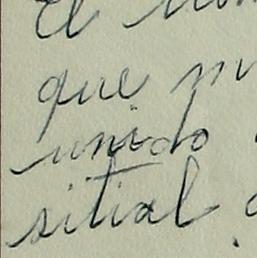 El
que
unido
sitial